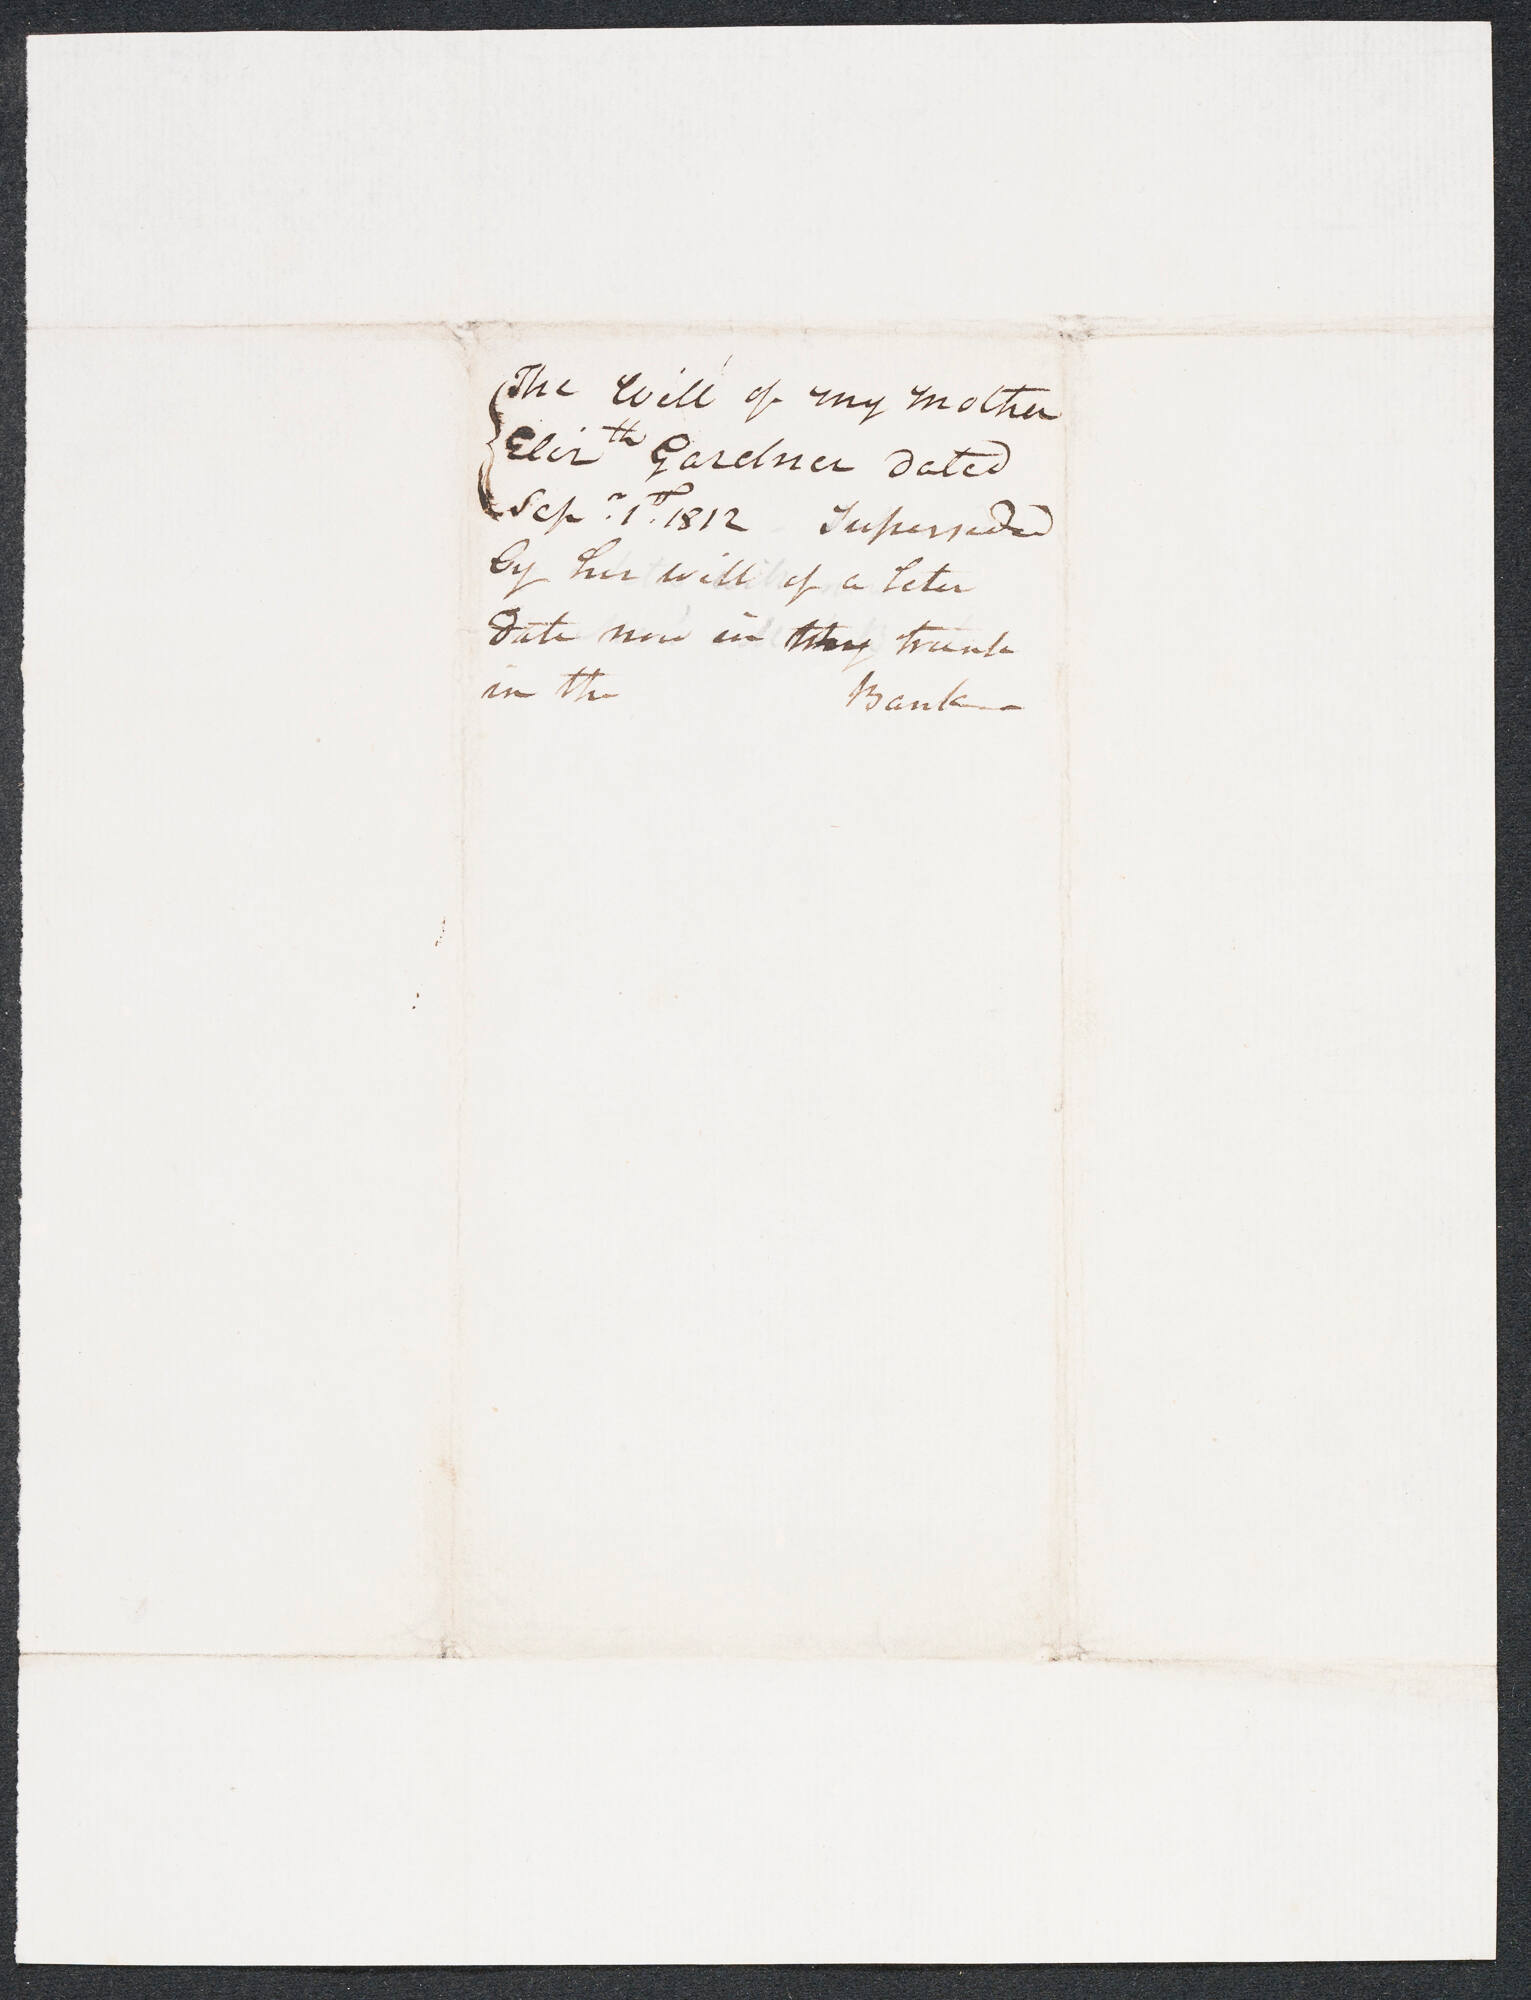 The Will of my Mother
Eliz.th Gardner dated
Sepr. 1st. 1812 Superseded
by her will of a later
date now in my trunk
in the Bank